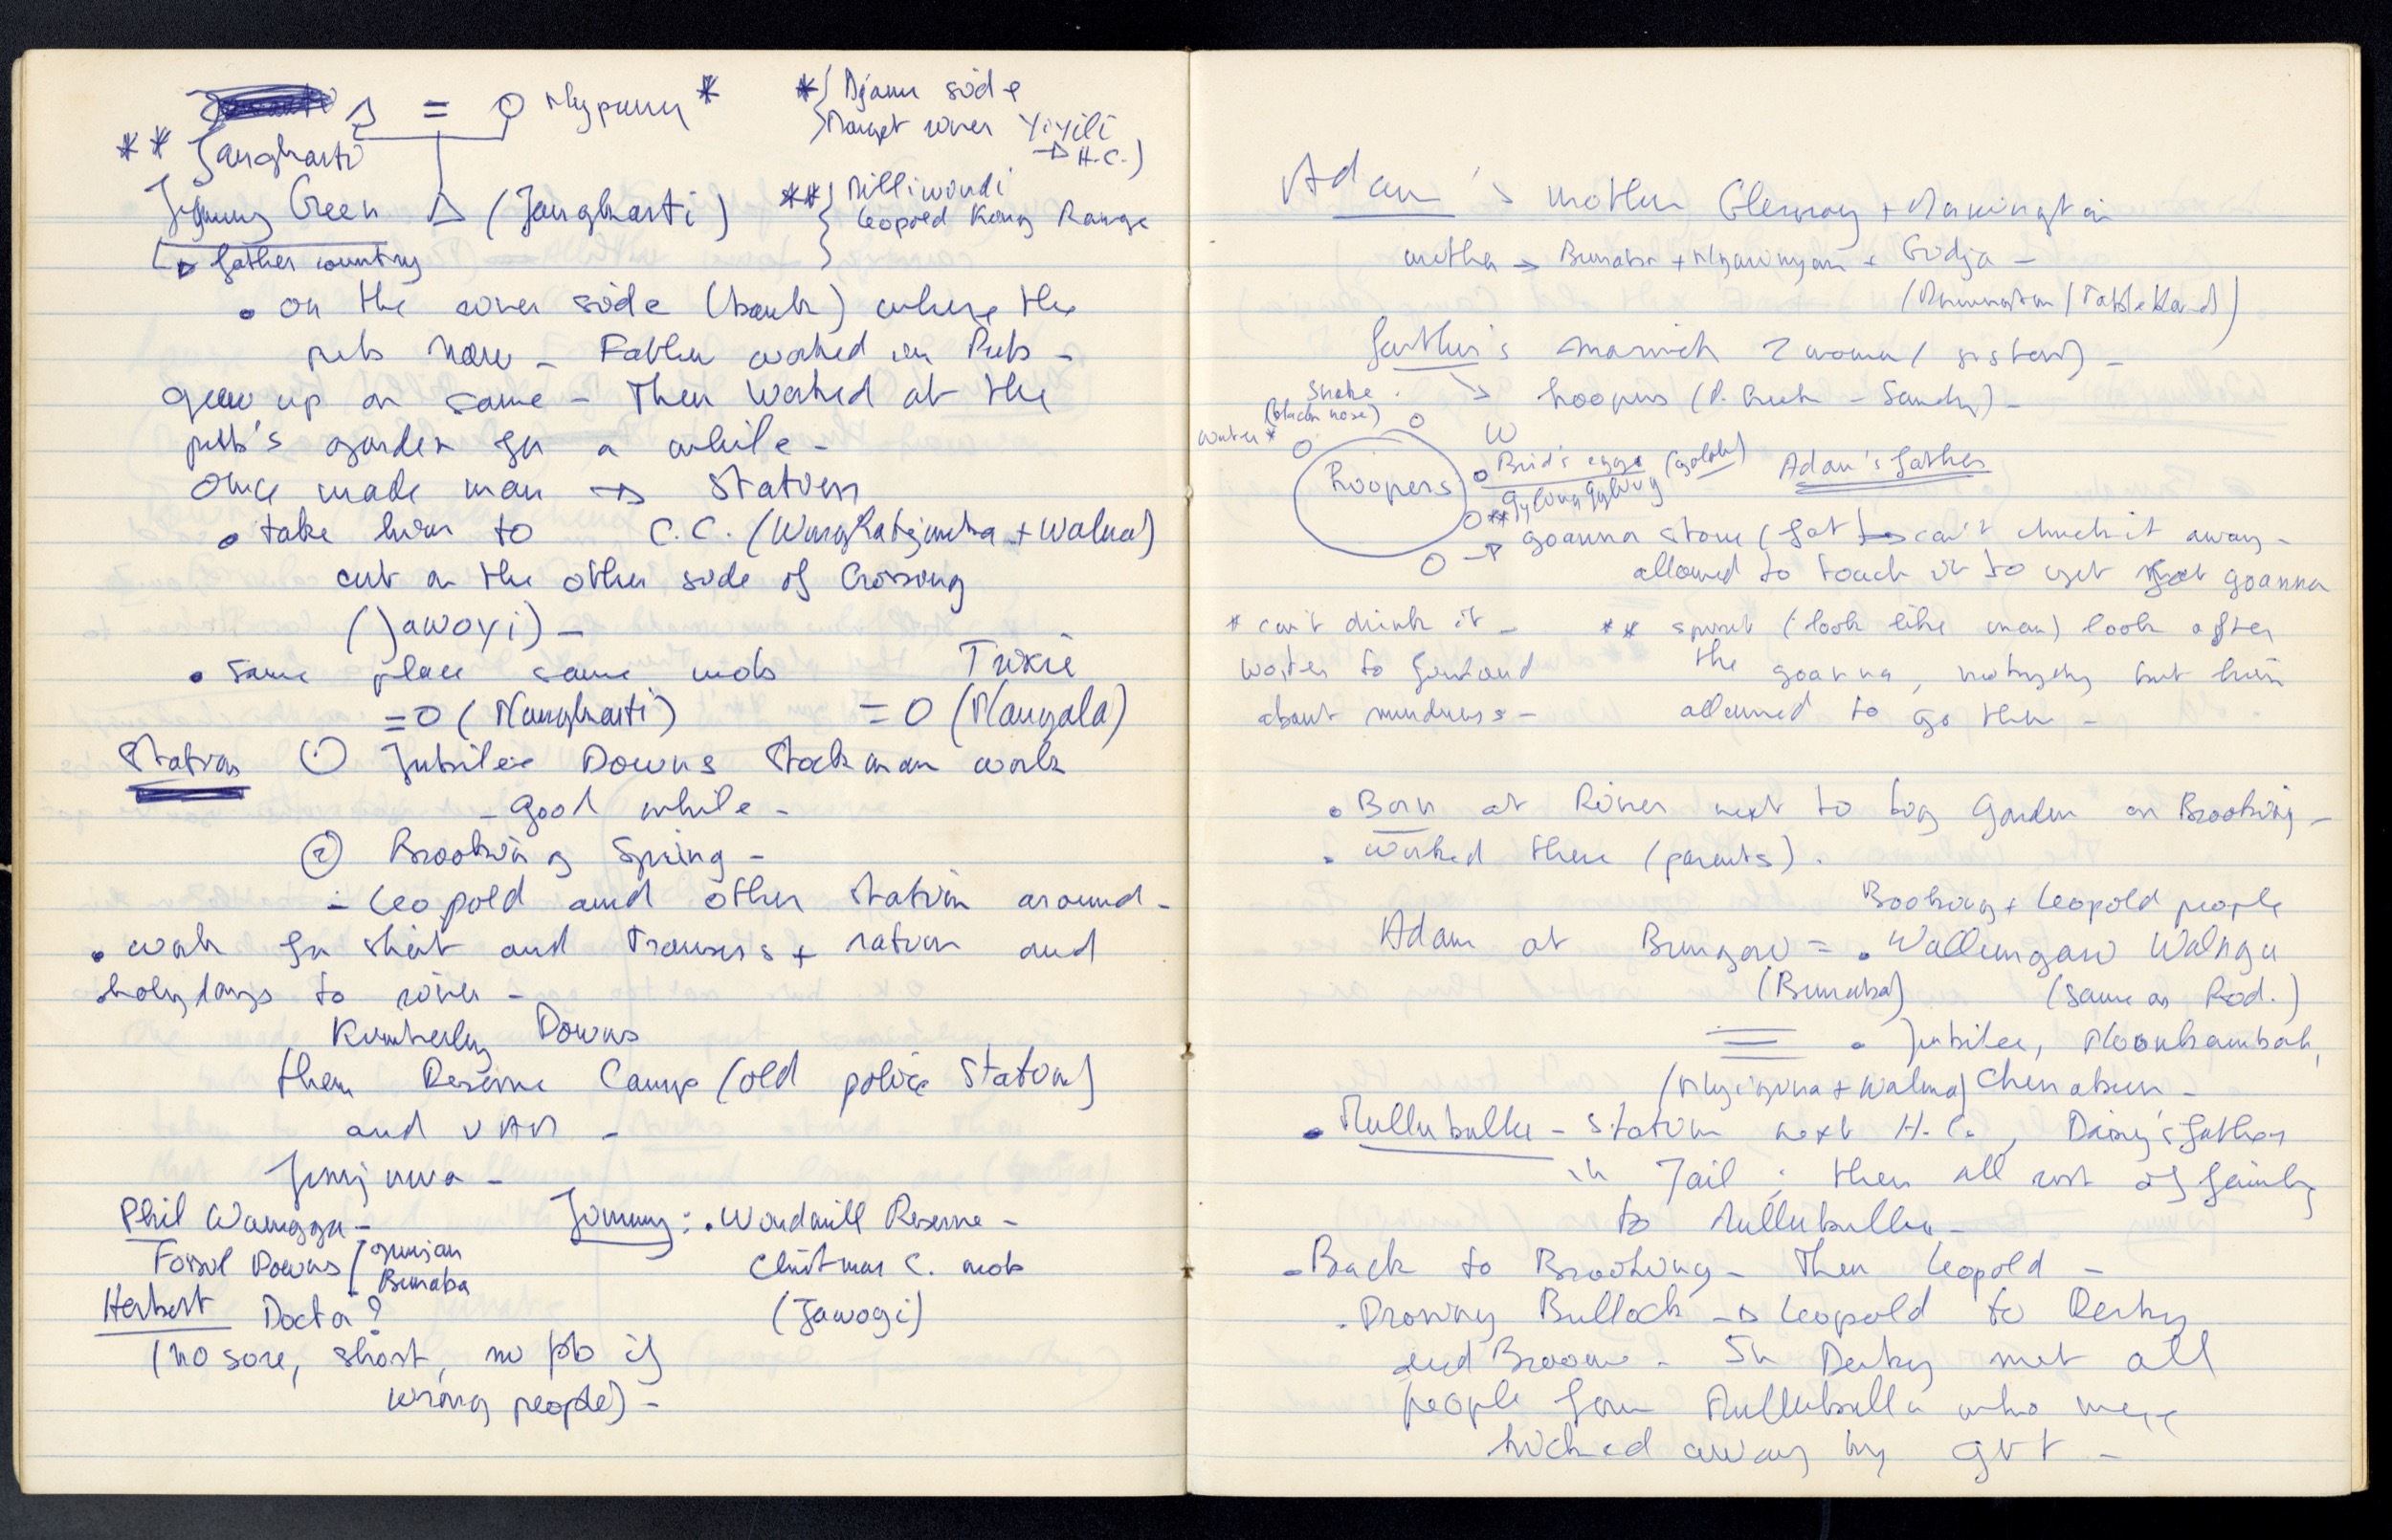 = Nypurru *
* Djaru side
Margret river Yiyili
→ H.C.)
** Jangkarti
Jimmy Green (Jangkarti)
** Milliwindi
Leopold King Range
father country
• on the river side (bank) where the
pub now - Father worked in Pub -
grew up on same - Then worked at the
pub's garden for a while -
Once made man → Station
• take him to C.C. (Wangkatjunka + Walma)
cut on the other side of Crossing
(Jawoyi) -
• same place same mob Trixie
=O (Nangkarti) =O (Nangala)
Station ① Jubilee Downs Stockman work
- good while -
② Brooking Spring -
- Leopold and other station around -
• work for shirt and trousers + ration and
holydays to river -
Kimberley Downs
then Reserve Camp (old police station)
and UAM -
Junjuwa -
Phil Wamgga -
Fossil Downs gunian
Bunaba
Jimmy: • Windmill Reserve -
Christmas C. mob
(Jawogi)
Herbert Docta?
(no sore, short, no pb if
wrong people) -
Adam's mother Glenroy + Mornington
mother → Bunaba + Ngarinyan + Gidja -
(Mornington / Tableland)
father's married 2 women (sisters) -
→ hoopers (P. Creek - Sandy) -
Snake
(black nose)
water *
W
Roopers
Bird's eggs (galah)
Adam's father
**
→ goanna stone (fat) → can't chuck it away -
allowed to touch it to get fat goanna
* can't drink it -
water to
about
** spirit (look like man) look after
the goanna, nobody but him
allowed to go there -
• Born at River next to big Garden on Brooking -
• worked there (parents).
Brooking + Leopold people
Adam at Bungaw = • Wallungaw Walngu
(Bunaba) (same as Rod.)
= • Jubilee, Noonkambah,
(Nyigina + Walma) Cherrabun -
• Mullubulla - Station next H.C., Daisy's father
in Jail; then all rest of family
to Mullubulla -
- Back to Brooking - Then Leopold -
- Droving Bullock → Leopold to Derby
and Broome - In Derby met all
people from Mullubulla who were
kicked away by gvt -